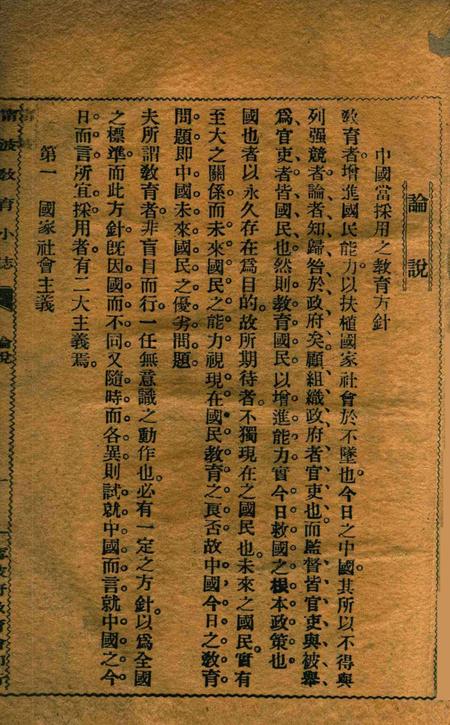 論說
中國當採用之教育方針
教育者增進國民能力以扶植國家社會於不墜也今日之中國其所以不得與
列强競者論者知歸咎於政府矣顧組織政府者官吏也而監督皆官吏與被舉
爲官吏者皆國民也然則教育國民以增進能力實今日救國之根本政策也
國也者以永久存在爲目的故所期待者不獨現在之國民也未來之國民實有
至大之關係而未來國民之能力視現在國民教育之良否故中國今日之教育
問題即中國未來國民之優劣問題
夫所謂教育者非盲目而行一任無意識之動作也必有一定之方針以爲全國
之標準而此方針旣因國而不同又隨時而各異則試就中國而言就中國之今
日而言所宜採用者有二大主義焉
第一 國家社會主義
波教育小誌 論說 一